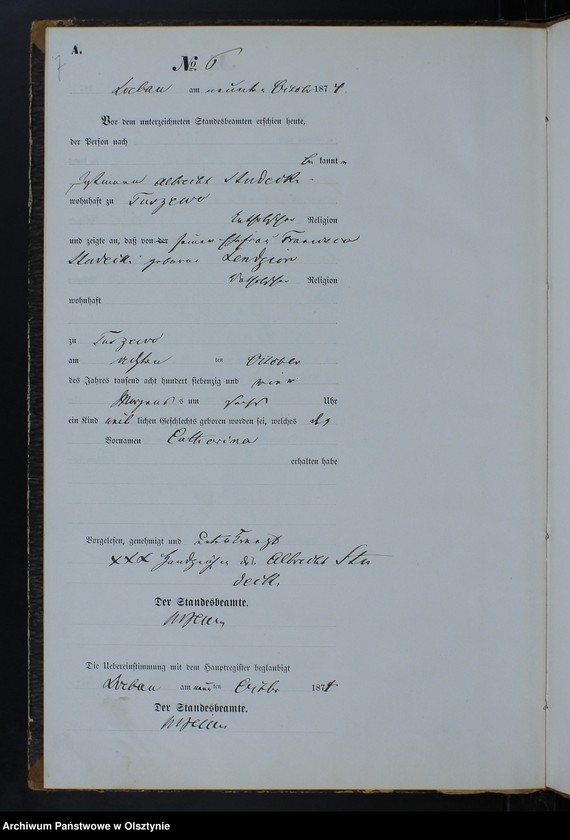 A.
7
No. 6
Loebau am neunten October 1874
Vor dem unterzeichneten Standesbeamten erschien heute,
der Person nach
bekannt
Albrecht Studecki
wohnhaft zu Tuszewo
katholischer Religion
und zeigte an, daß von der seiner Ehefrau Francisca
Studecki geborne Lendzion
katholischer Religion
wohnhaft
zu Tuszewo
am achten ten October
des Jahres tausend acht hundert siebenzig und vier
Morgens s um sechs Uhr
ein Kind weib lichen Geschlechts geboren worden sei, welches
Vornamen Catherina
erhalten habe
Vorgelesen, genehmigt und
xxx Handzeichen des Albrecht Stu
decki
Der Standesbeamte.
Die Uebereinstimmung mit dem Hauptregister beglaubigt
Loebau am neun ten October 1874
Der Standesbeamte.
Archiwum Państwowe w Olsztynie